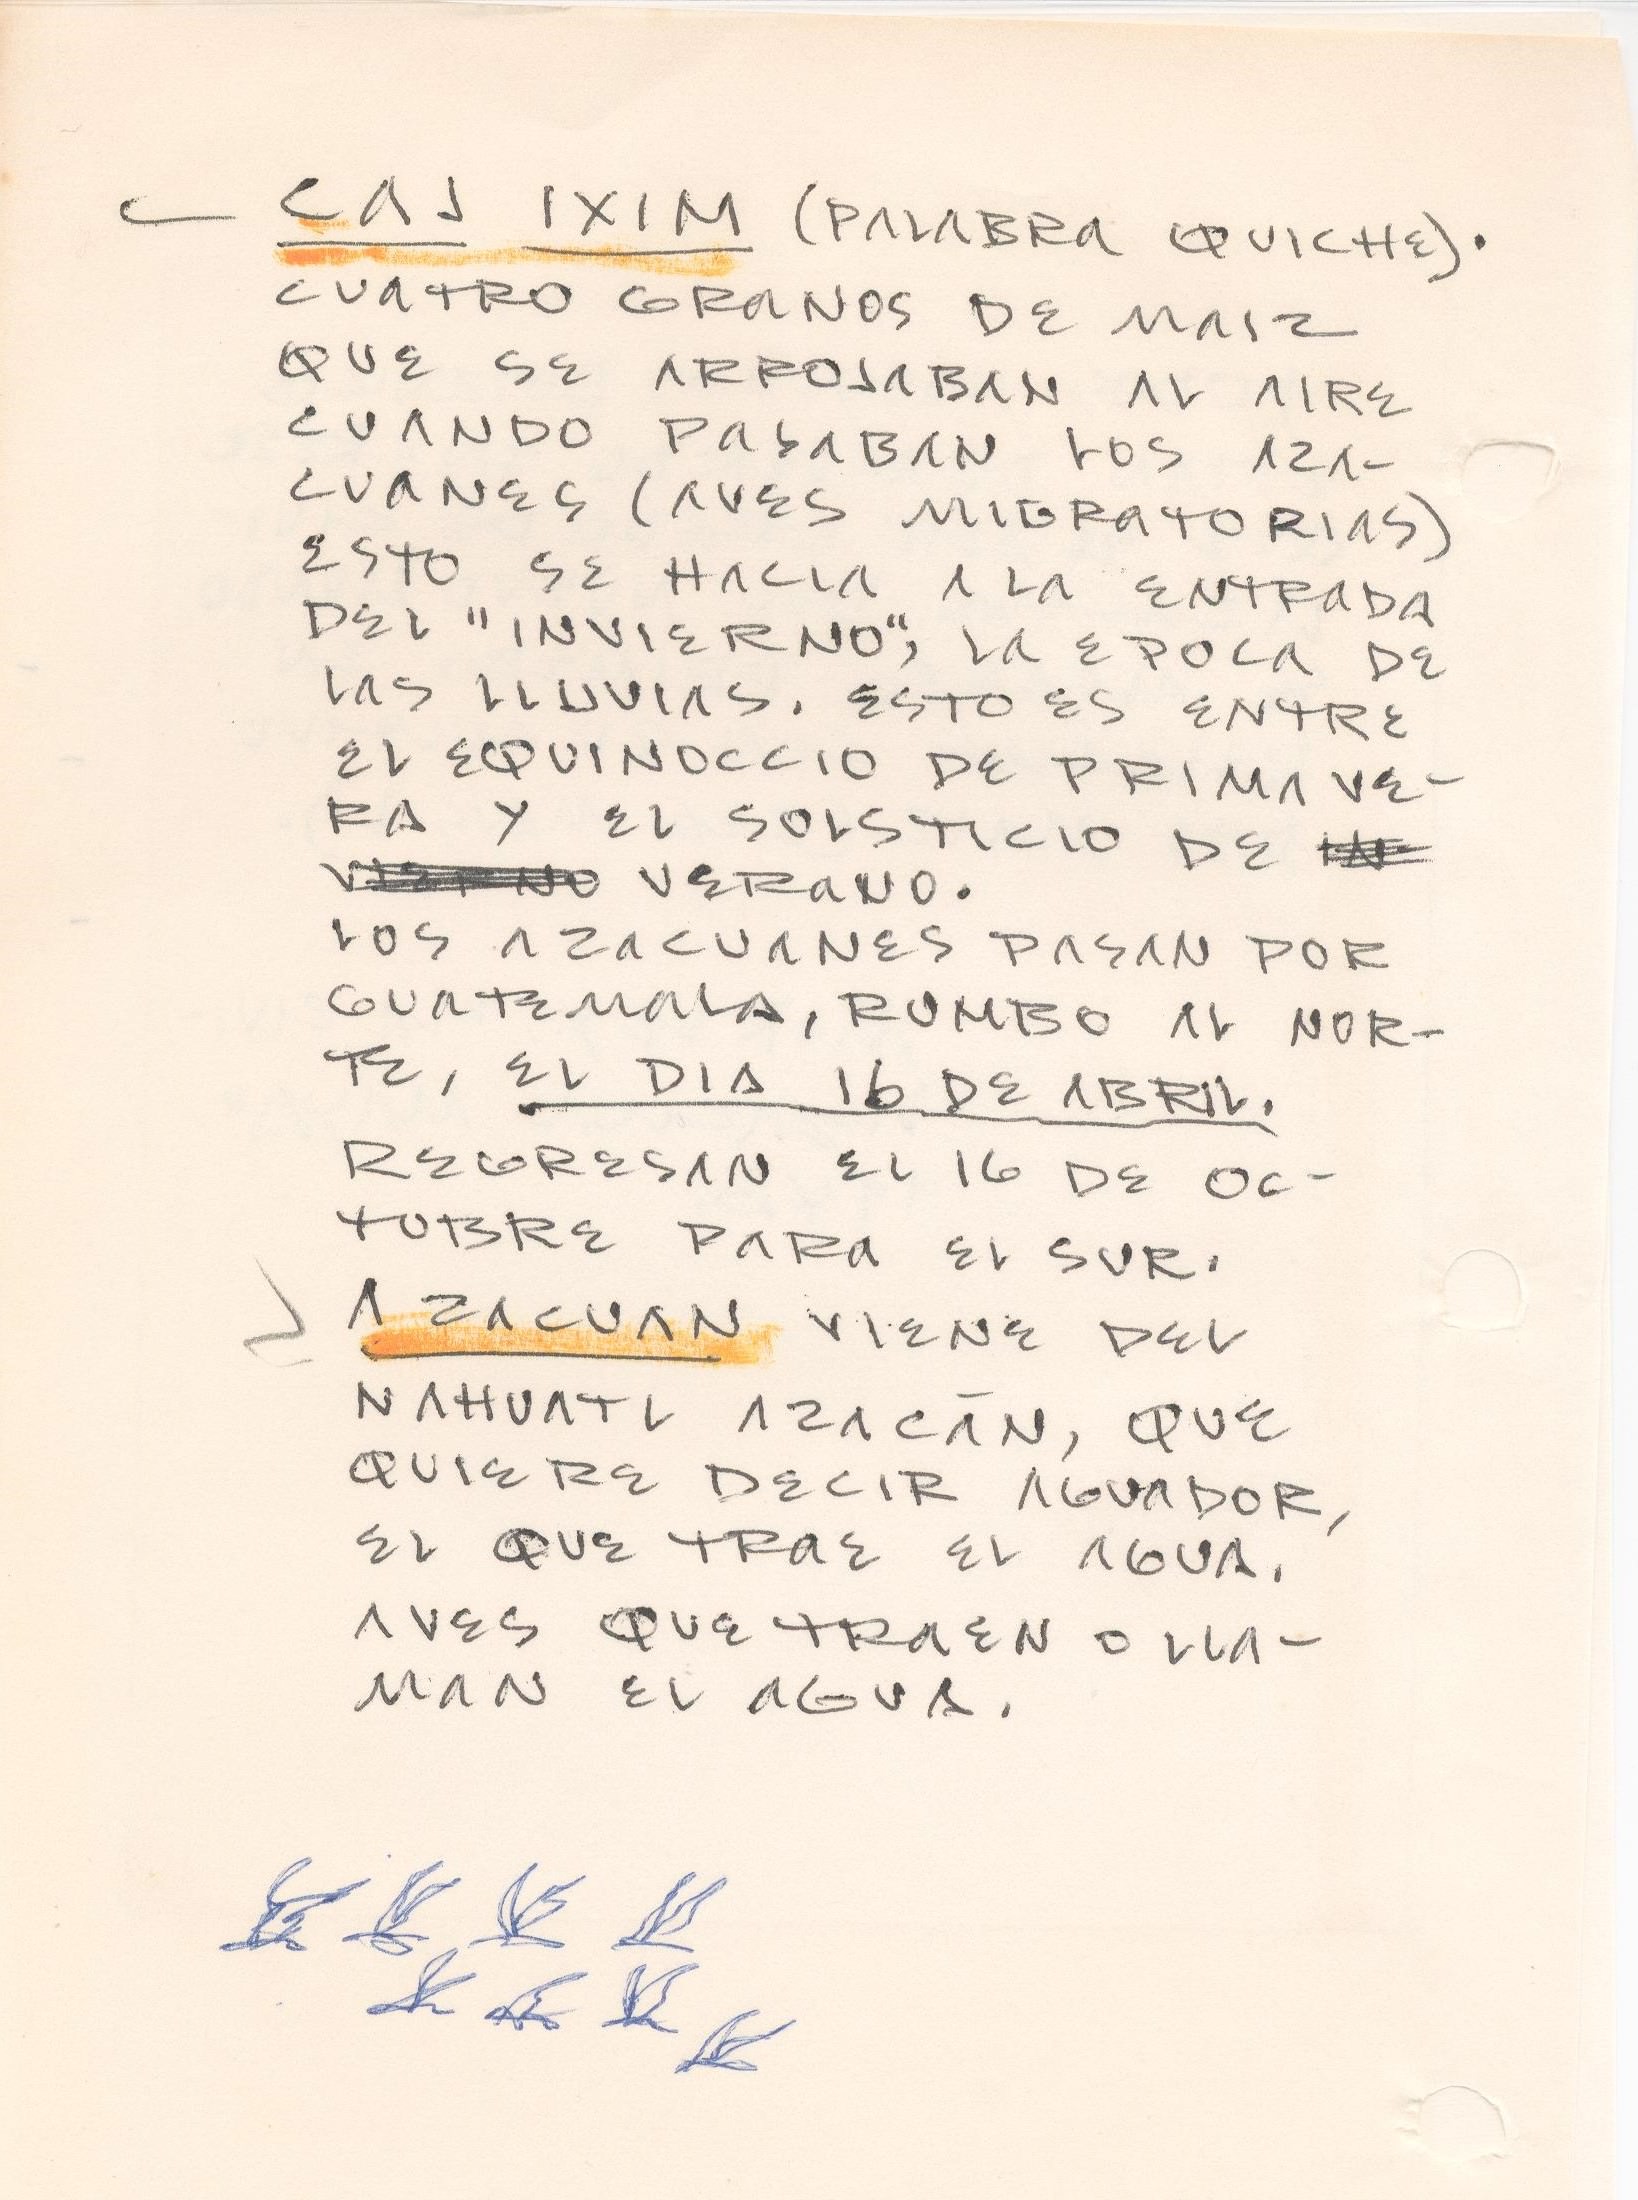 CAJ IXIM (PALABRA QUICHE).
CUATRO GRANOS DE MAIZ
QUE SE ARROJABAN AL AIRE
CUANDO PASABAN LOS AZA-
CUANES (AVES MIGRATORIAS)
ESTO SE HACIA A LA ENTRADA
DEL "INVIERNO", LA EPOCA DE
LAS LLUVIAS. ESTO ES ENTRE
EL EQUINOCCIO DE PRIMAVE-
RA Y EL SOLSTICIO DE IN
VIERNO VERANO.
LOS AZACUANES PASAN POR
GUATEMALA, RUMBO AL NOR-
TE, EL DIA 16 DE ABRIL.
REGRESAN EL 16 DE OC-
TUBRE PARA EL SUR.
AZACUAN VIENE DEL
NAHUATL AZACĀN, QUE
QUIERE DECIR AGUADOR,
EL QUE TRAE EL AGUA.
AVES QUE TRAEN O LLA-
MAN EL AGUA.